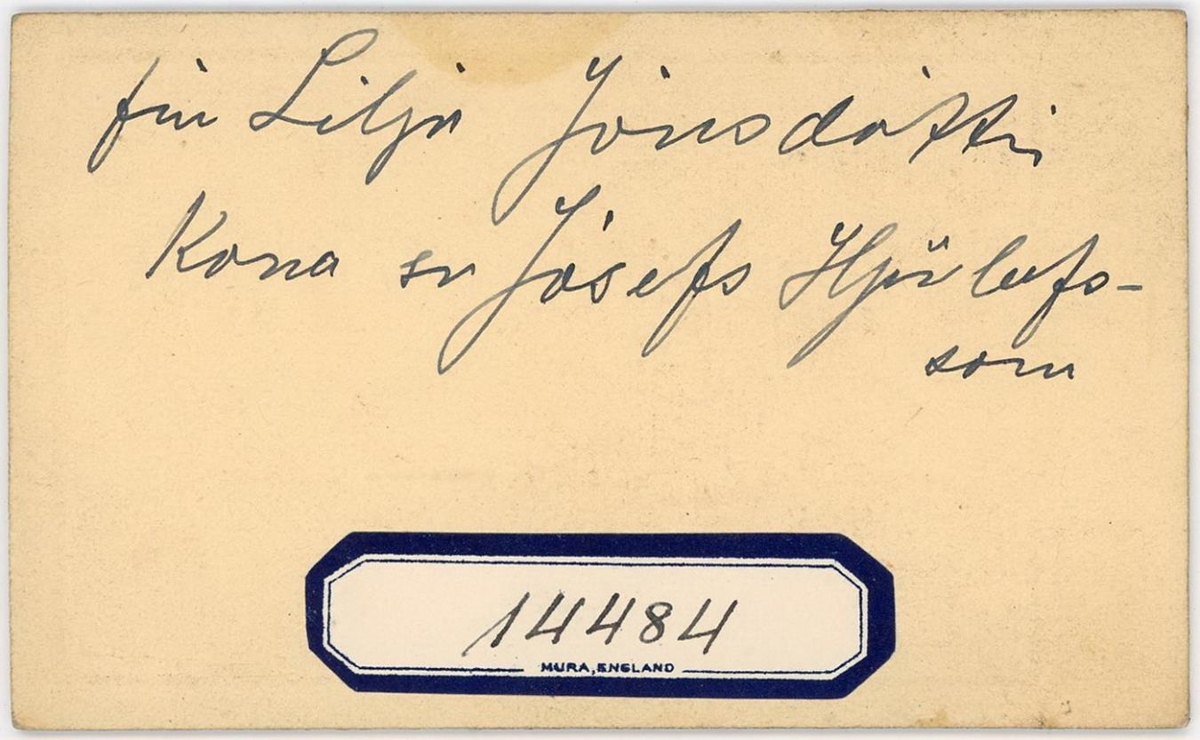 frú Lilja Jónsdóttir
Kona sr Jósefs Hjörleifs-
sonar
14484
MURA, ENGLAND